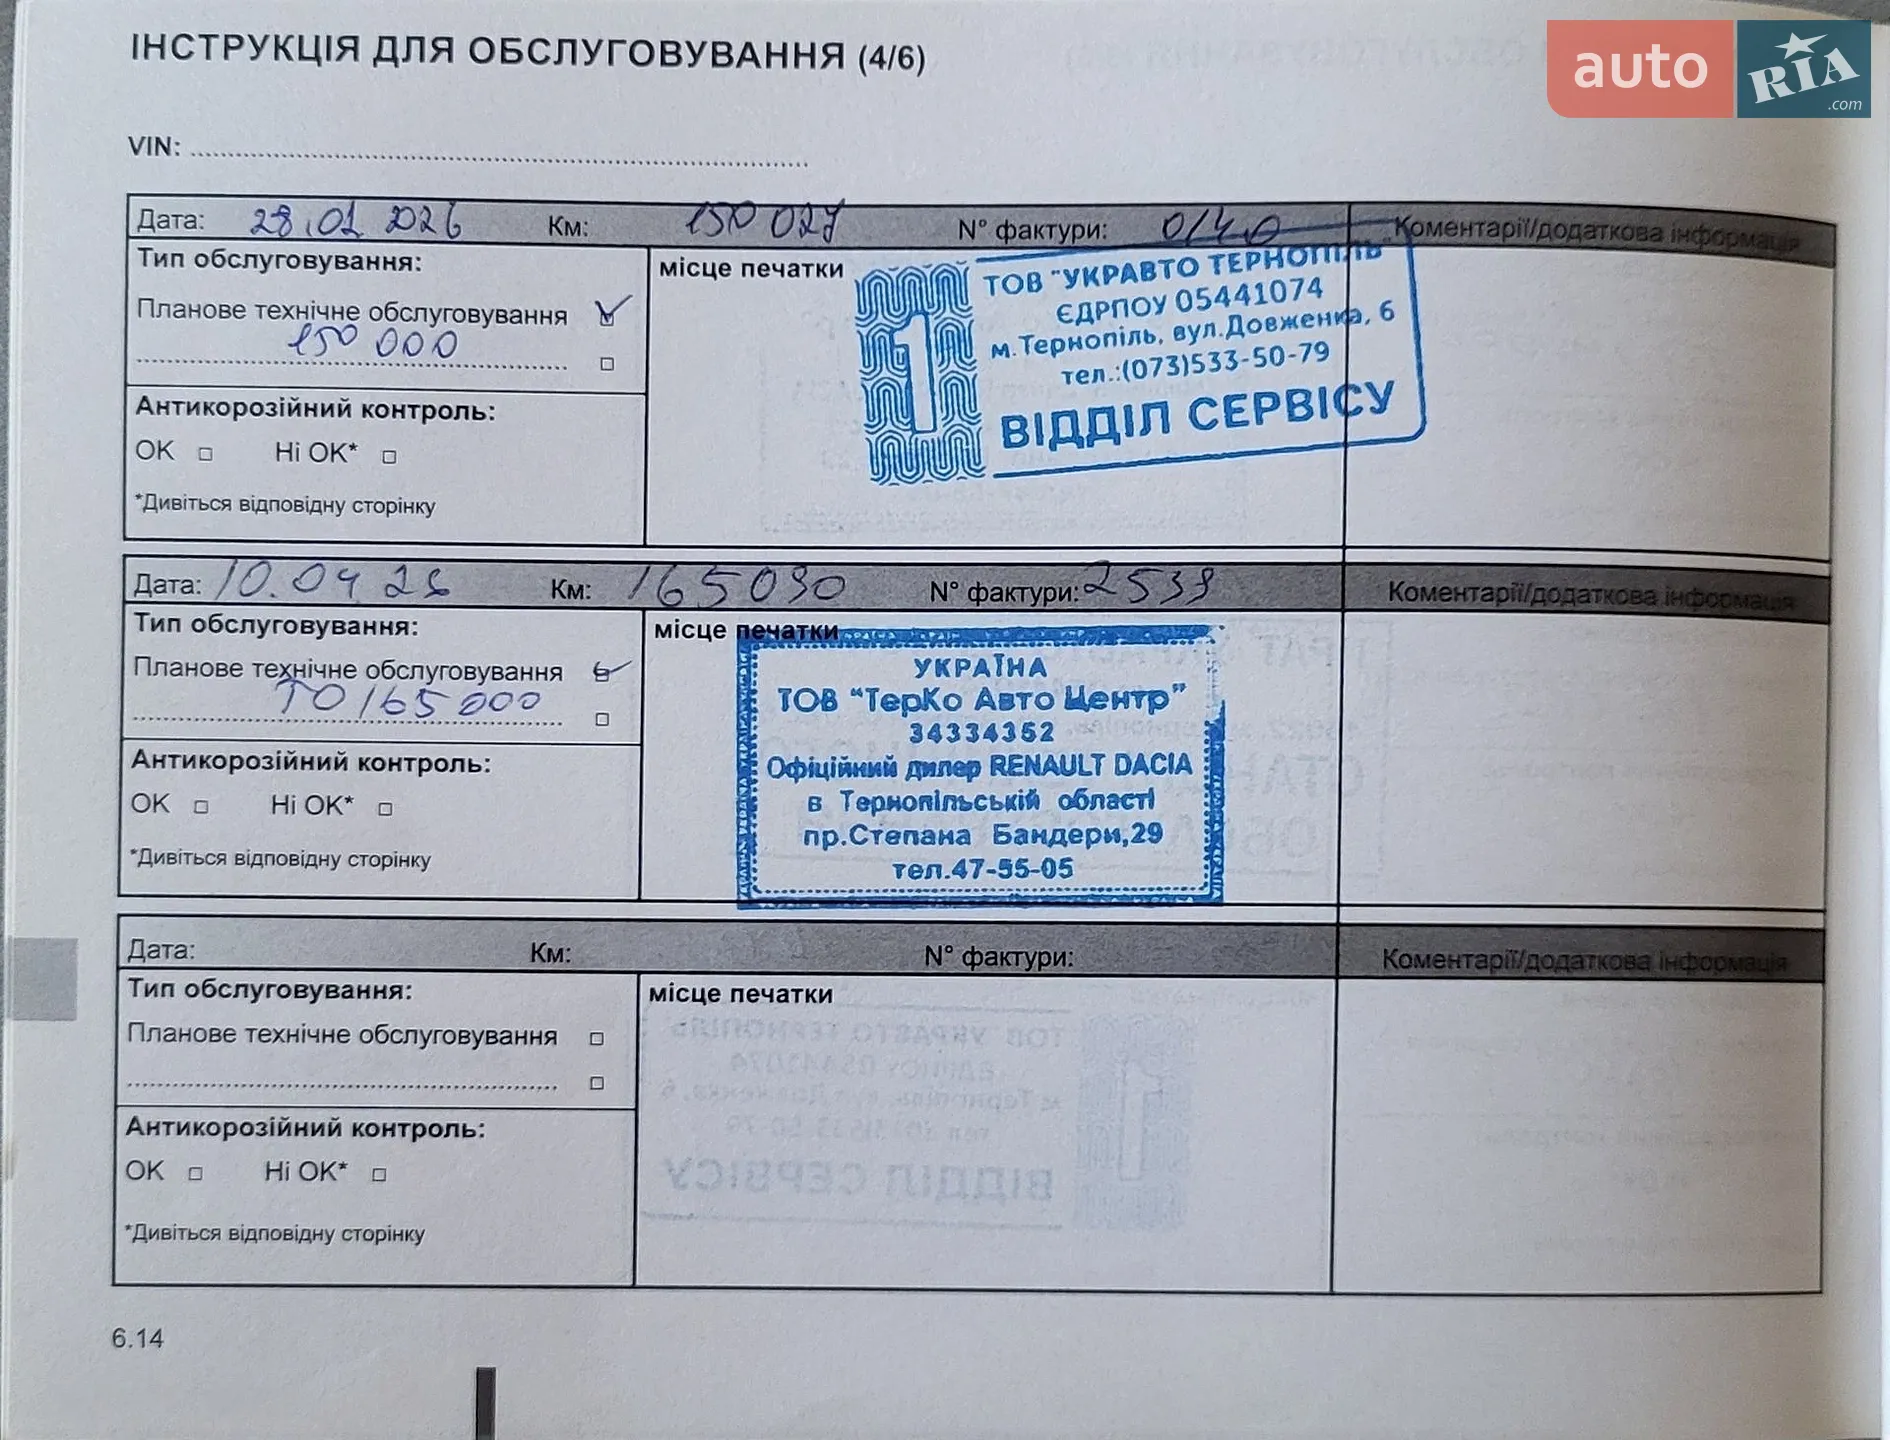 ІНСТРУКЦІЯ ДЛЯ ОБСЛУГОВУВАННЯ (4/6)
auto RIA .com
VIN:
Дата: 28.01 2026 Км: 150 027 N° фактури: 0140 Коментарії/додаткова інформація
Тип обслуговування:
Планове технічне обслуговування
150 000
Антикорозійний контроль:
ОК Ні ОК*
*Дивіться відповідну сторінку
місце печатки
1
ТОВ "УКРАВТО ТЕРНОПІЛЬ"
ЄДРПОУ 05441074
м.Тернопіль, вул.Довженка, 6
тел.:(073)533-50-79
ВІДДІЛ СЕРВІСУ
Дата: 10.04 26 Км: 165030 N° фактури: 2539 Коментарії/додаткова інформація
Тип обслуговування:
Планове технічне обслуговування
ТО 165 000
Антикорозійний контроль:
ОК Ні ОК*
*Дивіться відповідну сторінку
місце печатки
УКРАЇНА
ТОВ "ТерКо Авто Центр"
34334352
Офіційний дилер RENAULT DACIA
в Тернопільській області
пр.Степана Бандери,29
тел.47-55-05
Дата: Км: N° фактури: Коментарії/додаткова інформація
Тип обслуговування:
Планове технічне обслуговування
Антикорозійний контроль:
ОК Ні ОК*
*Дивіться відповідну сторінку
місце печатки
6.14